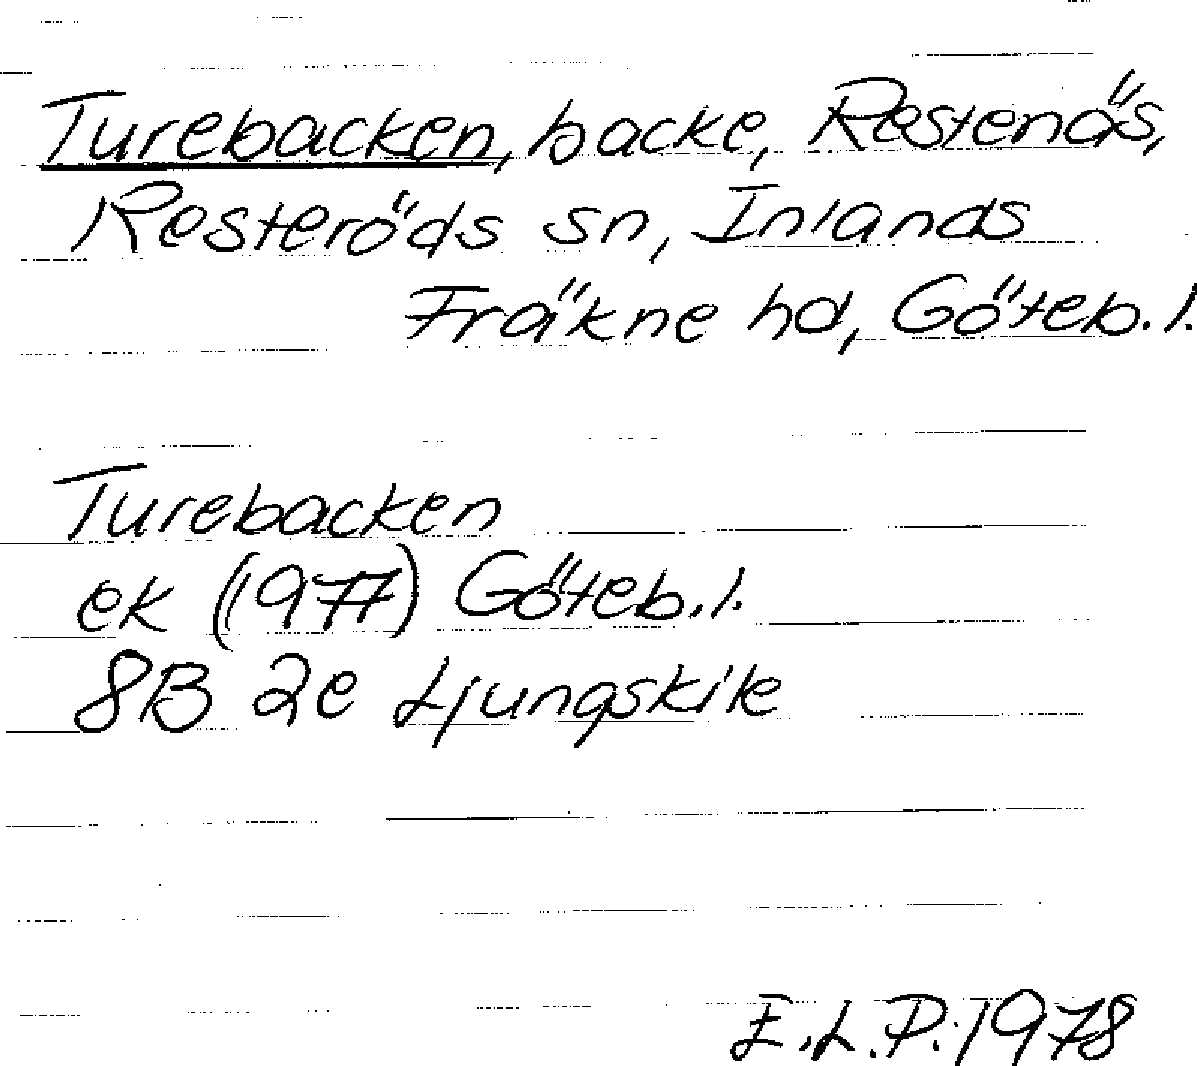 Turebacken, backe, Restenäs,
Resteröds sn, Inlands
Fräkne hd, Göteb. l.
Turebacken
ek (1977) Göteb. l.
8B 2e Ljungskile
E.L.P. 1978